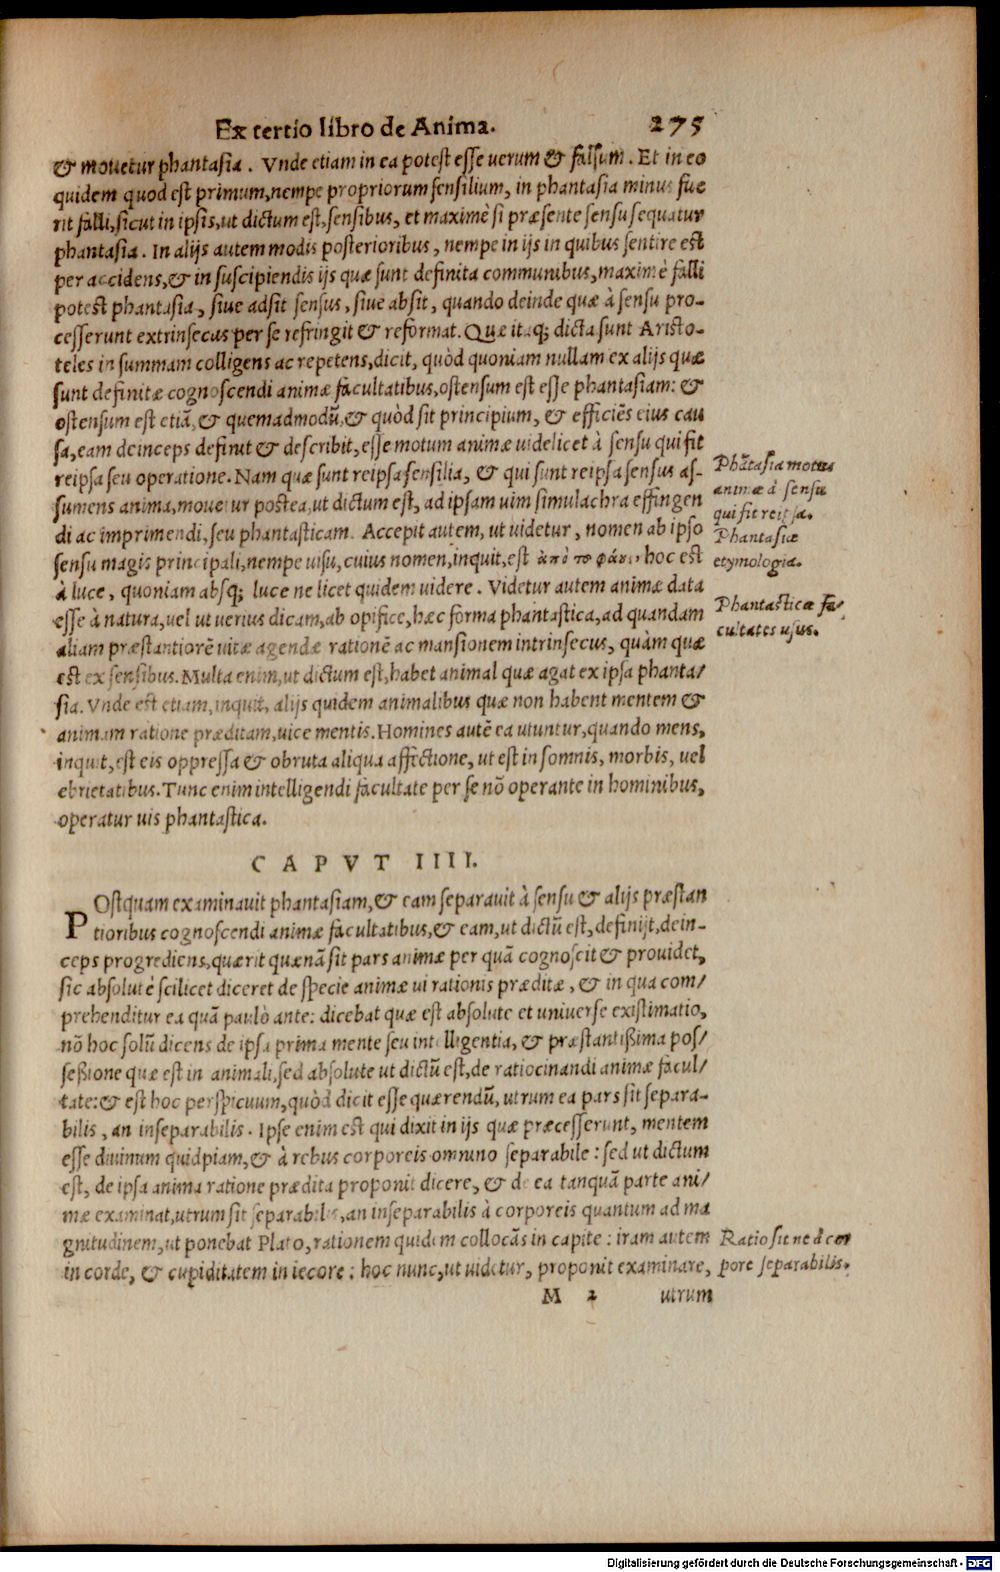 Ex tertio libro de Anima. 275
& mouetur phantasia. Vnde etiam in ea potest esse uerum & falsum. Et in eo
quidem quod est primum, nempe propriorum sensilium, in phantasia minus fue
rit falli, sicut in ipsis, ut dictum est, sensibus, et maximè si præsente sensu sequatur
phantasia. In alijs autem modis posterioribus, nempe in ijs in quibus sentire est
per accidens, & in suscipiendis ijs quæ sunt definita communibus, maximè falli
potest phantasia, siue adsit sensus, siue absit, quando deinde quæ à sensu pro-
cesserunt extrinsecus per se refringit & reformat. Quæ itaq; dicta sunt Aristo-
teles in summam colligens ac repetens, dicit, quòd quoniam nullam ex alijs quæ
sunt definitæ cognoscendi animæ facultatibus, ostensum est esse phantasiam: &
ostensum est etiã, & quemadmodũ, & quòd sit principium, & efficiẽs eius cau
sa, eam deinceps definit & describit, esse motum animæ uidelicet à sensu qui fit
reipsa seu operatione. Nam quæ sunt reipsa sensilia, & qui sunt reipsa sensus as-
sumens anima, mouetur postea, ut dictum est, ad ipsam uim simulachra effingen
di ac imprimendi, seu phantasticam. Accepit autem, ut uidetur, nomen ab ipso
sensu magis principali, nempe uisu, cuius nomen, inquit, est ἀπὸ το φάους hoc est
à luce, quoniam absq; luce ne licet quidem uidere. Videtur autem animæ data
esse à natura, uel ut uerius dicam, ab opifice, hæc forma phantastica, ad quandam
aliam præstantiorẽ uitæ agendæ rationẽ ac mansionem intrinsecus, quàm quæ
est ex sensibus. Multa enim, ut dictum est, habet animal quæ agat ex ipsa phanta/
sia. Vnde est etiam, inquit, alijs quidem animalibus quæ non habent mentem &
animam ratione præditam, uice mentis. Homines autẽ ea utuntur, quando mens,
inquit, est eis oppressa & obruta aliqua affectione, ut est in somnis, morbis, uel
ebrietatibus. Tunc enim intelligendi facultate per se nõ operante in hominibus,
operatur uis phantastica.
Phãtasia motus
animæ à sensu
qui fit reipsa.
Phantasiæ
etymologia.
Phantasticæ fa/
cultates usus.
CAPVT IIII.
POstquam examinauit phantasiam, & eam separauit à sensu & alijs præstan
tioribus cognoscendi animæ facultatibus, & eam, ut dictũ est, definijt, dein-
ceps progrediens, quærit quænã sit pars animæ per quã cognoscit & prouidet,
sic absolutè scilicet diceret de specie animæ ui rationis præditæ, & in qua com/
prehenditur ea quã paulò ante: dicebat quæ est absolute et uniuerse existimatio,
nõ hoc solũ dicens de ipsa prima mente seu intelligentia, & præstantißima pos/
seßione quæ est in animali, sed absolute ut dictũ est, de ratiocinandi animæ facul/
tate: & est hoc perspicuum, quòd dicit esse quærendũ, utrum ea pars sit separa-
bilis, an inseparabilis. Ipse enim est qui dixit in ijs quæ præcesserunt, mentem
esse diuinum quidpiam, & à rebus corporeis omnino separabile: sed ut dictum
est, de ipsa anima ratione prædita proponit dicere, & de ea tanquã parte ani/
mæ examinat, utrum sit separabilis, an inseparabilis à corporeis quantum ad ma
gnitudinem, ut ponebat Plato, rationem quidem collocãs in capite: iram autem
in corde, & cupiditatem in iecore: hoc nunc, ut uidetur, proponit examinare,
Ratio sit ne à cor
pore separabilis.
M 2 utrum
Digitalisierung gefördert durch die Deutsche Forschungsgemeinschaft - DFG